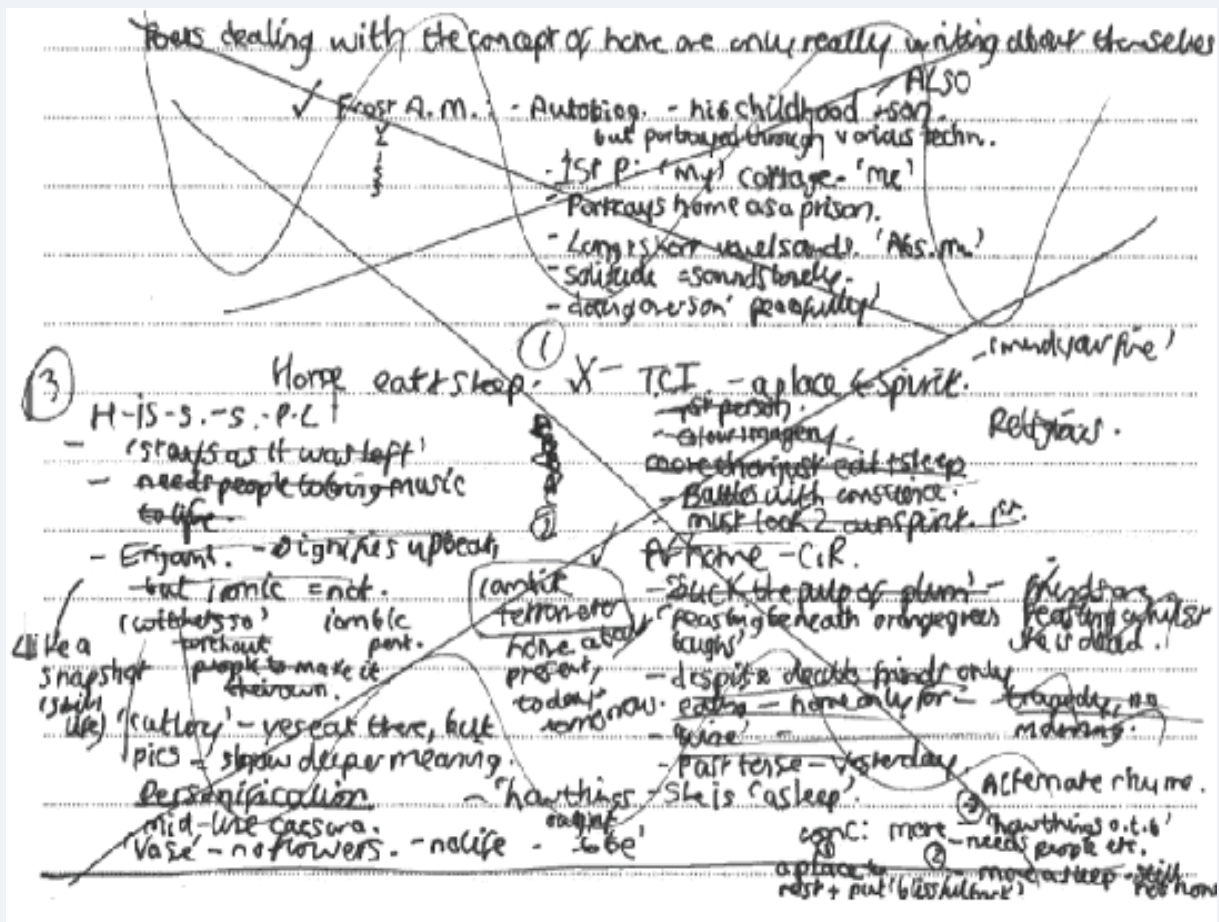 Poets dealing with the concept of home are only really writing about themselves
ALSO
✓ Frost A.M.: - Autobiog. - his childhood + son.
but portrayed through various techn.
- 1st P: 'My' cottage - 'me'
- Portrays home as a prison.
- Long + short vowel sounds. 'Abs. m.'
- solitude = sounds lonely.
- doting over son 'peacefully'
①
- 'mend your fire'
③
Home eat & sleep. X - TCI - a place 4 spirit.
H-is-s.-s.-P.L
- 1st person.
- colour imagery.
Religious.
- 'stays as it was left'
more than just eat + sleep
- needs people to bring music
to life.
- Battles with conscience.
- must look 2 own spirit. 1st.
②
- Enjam. - signifies upbeat,
but ironic = not.
At home - C.R.
iambic
tetrameter
- 'Suck the pulp of plum' - friends are
feasting whilst
she is dead.
'feasting beneath
'withers so' iambic
pent.
without
people to make it
their own.
Like a
snapshot
(still
life)
home about
present,
today
tomorrow.
- despite death friends only
eating - home only for - tragedy, no
- 'wine' -
'cutlery' - yes eat there, but
pics - show deeper meaning.
- Past tense - yesterday.
Personification
- 'how things
ought
to be'
- She is 'asleep'.
Alternate rhyme.
mid-line caesura.
'Vase' - no flowers. - no life
conc: more - 'how things o.t.b'
- needs people etc.
① a place to
rest + put
② - more asleep - still
not home
③